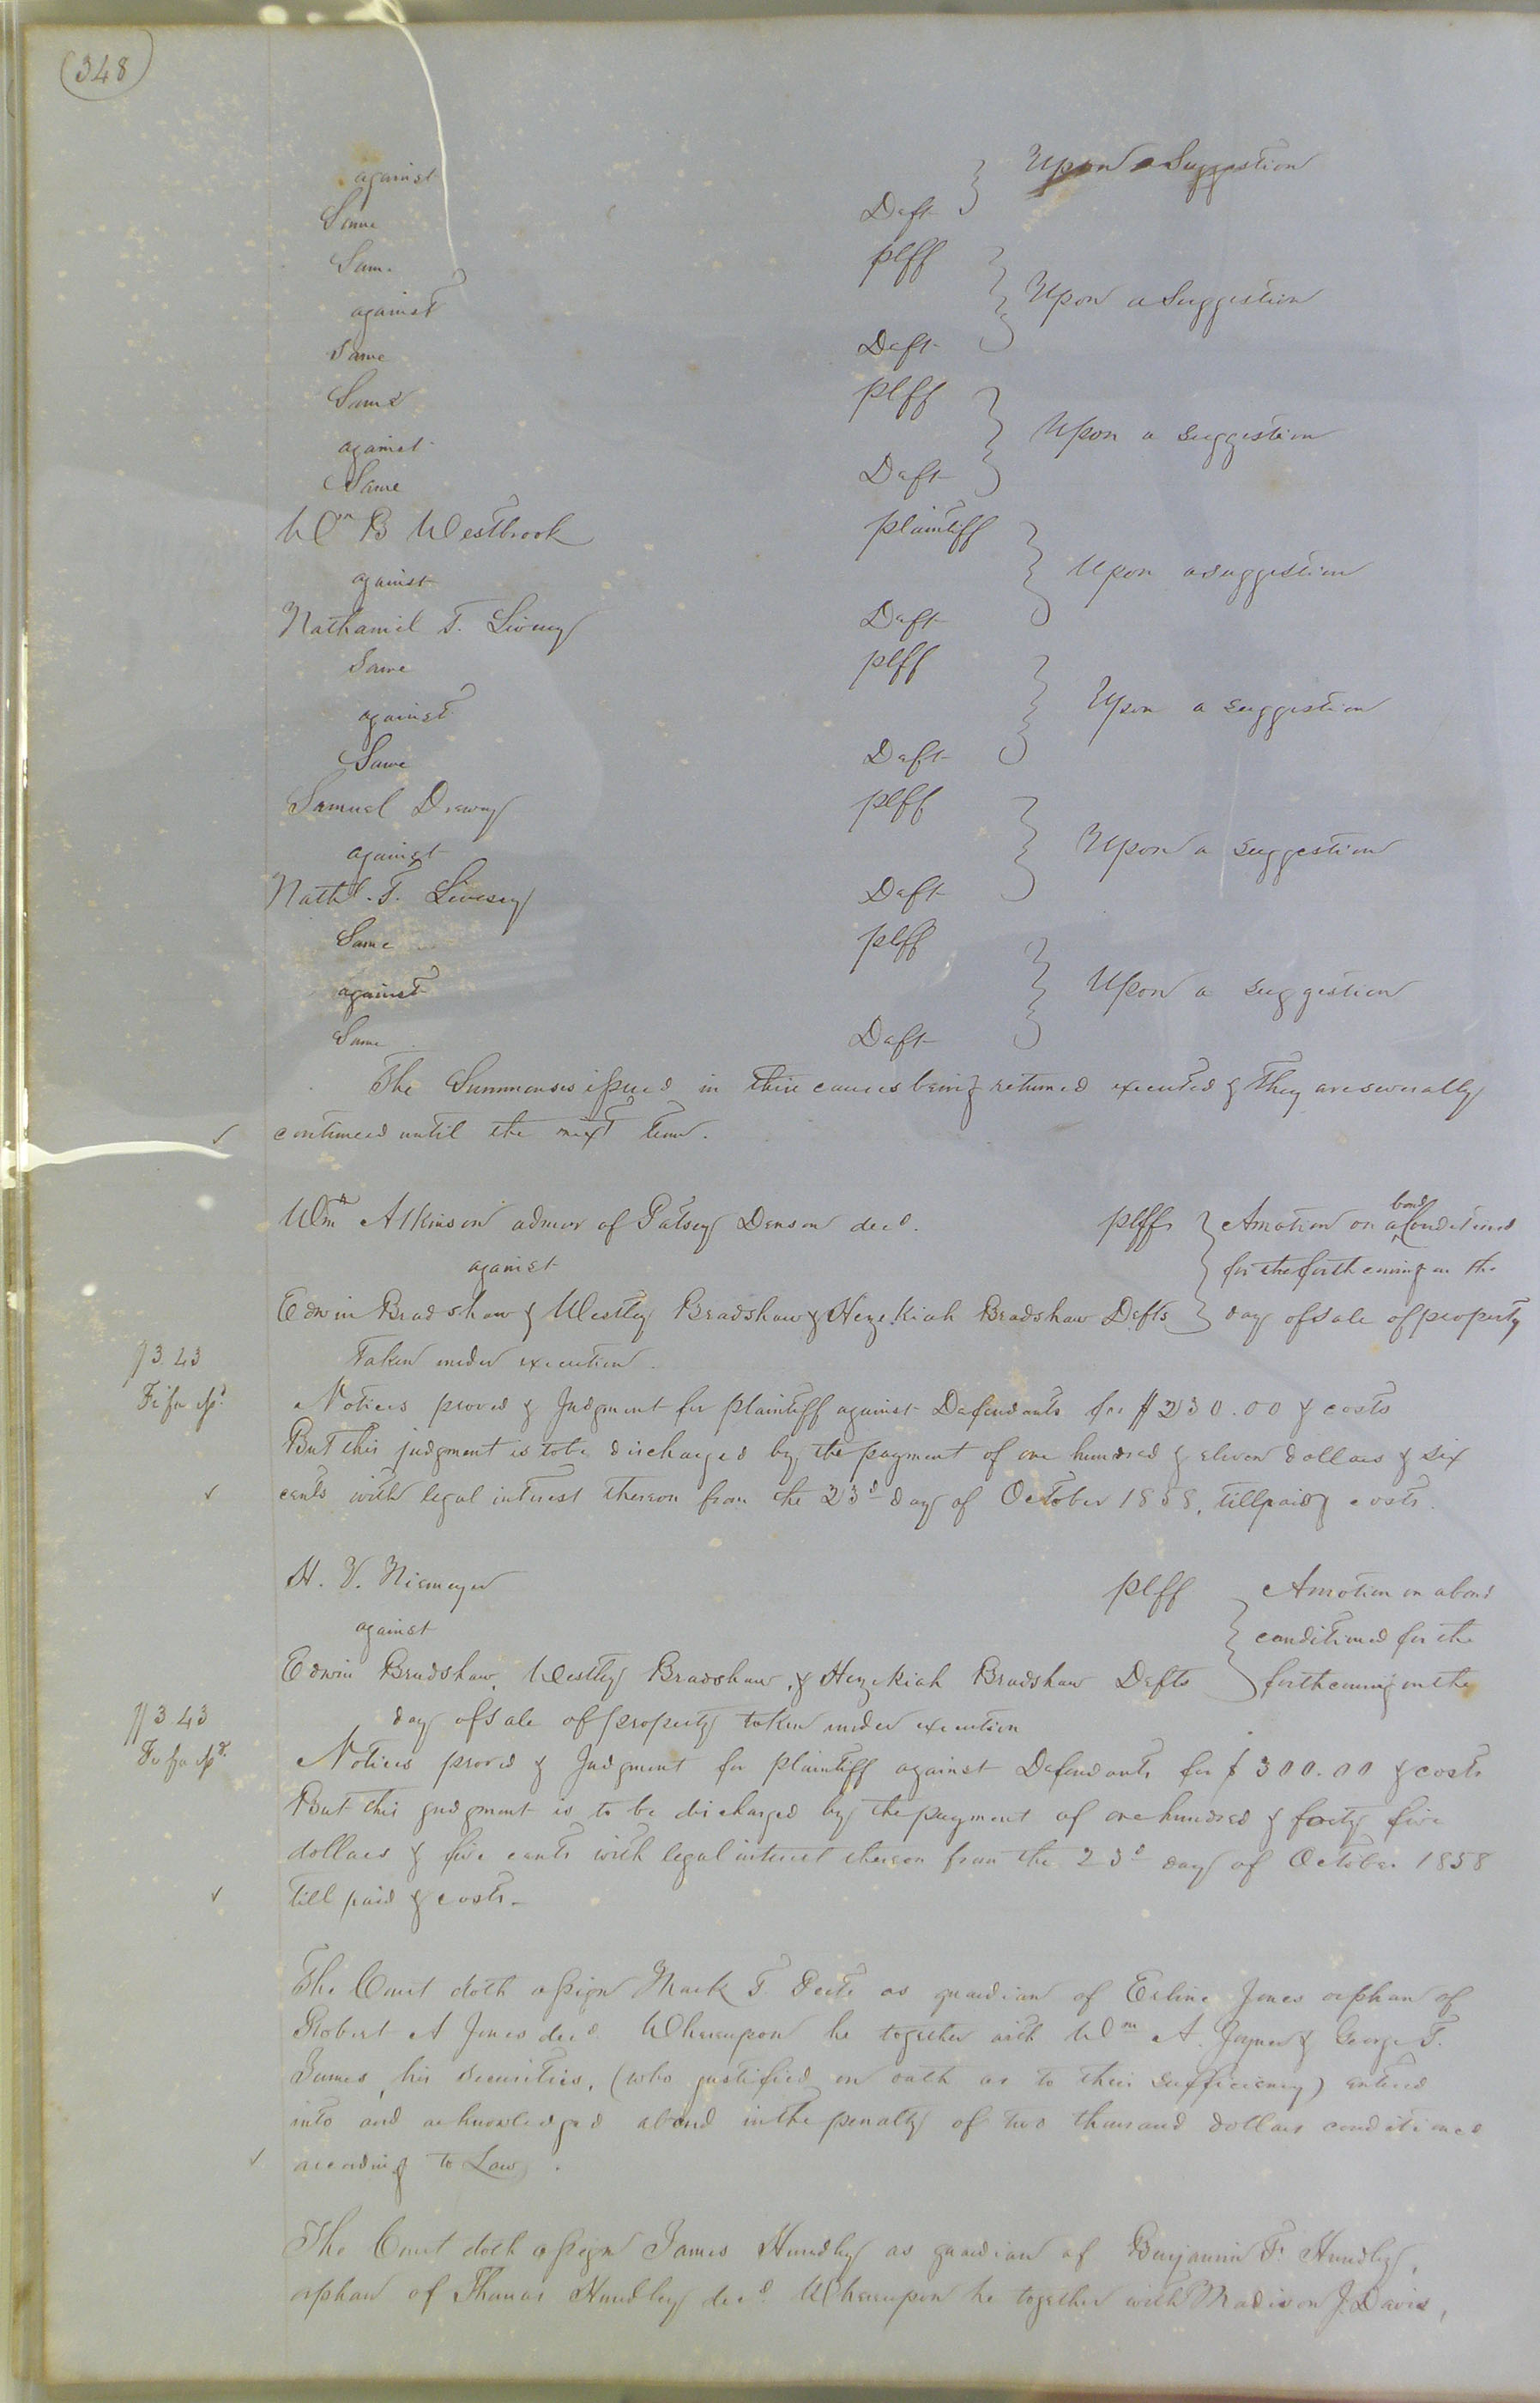 (348)
against Upon a Suggestion
Same Deft
Same plff
against Upon a Suggestion
Same Deft
Same plff
against Upon a suggestion
Same Deft
Wm B Westbrook plaintiff
against Upon a suggestion
Nathaniel T. Livesay Deft
Same plff
against Upon a suggestion
Same Deft
Samuel Drewry plff
against Upon a suggestion
Nathl. T. Livesay Deft
Same plff
against Upon a suggestion
Same Deft
The Summonses issued in these causes being returned executed & They are severally
continued until the next term.
Wm Atkinson admor of Patsey Denson decd. plffs A motion on a bond Conditioned
against for the forthcoming on the
Edwin Bradshaw & Westley Bradshaw & Hezekiah Bradshaw Defts day of sale of property
343 Taken under execution.
Fi fa Notices proved & Judgment for plaintiff against Defendants for $230.00 & costs
But this judgment is to be discharged by the payment of one hundred & eleven dollars & six
cents with legal interest thereon from the 23d day of October 1858, till paid & costs.
H. V. Niemeyer plff A motion on a bond
against conditioned for the
Edwin Bradshaw, Westley Bradshaw, & Hezekiah Bradshaw Defts forthcoming on the
343 day of sale of property taken under execution
Fi fa Notices proved & Judgment for plaintiff against Defendants for $300.00 & costs
But this judgment is to be discharged by the payment of one hundred & forty five
dollars & five cents with legal interest thereon from the 23d day of October 1858
till paid & costs.
The Court doth assign Mark T. as guardian of Jones orphan of
Robert A Jones decd. Whereupon he together with Wm A. Joyner & George T.
James, his securities, (who justified on oath as to their sufficiency) entered
into and acknowledged a bond in the penalty of two thousand dollars conditioned
according to Law.
The Court doth assign James Hundley as guardian of Benjamin F. Hundley,
orphan of Thomas Hundley decd. Whereupon he together with Madison J. Davis,